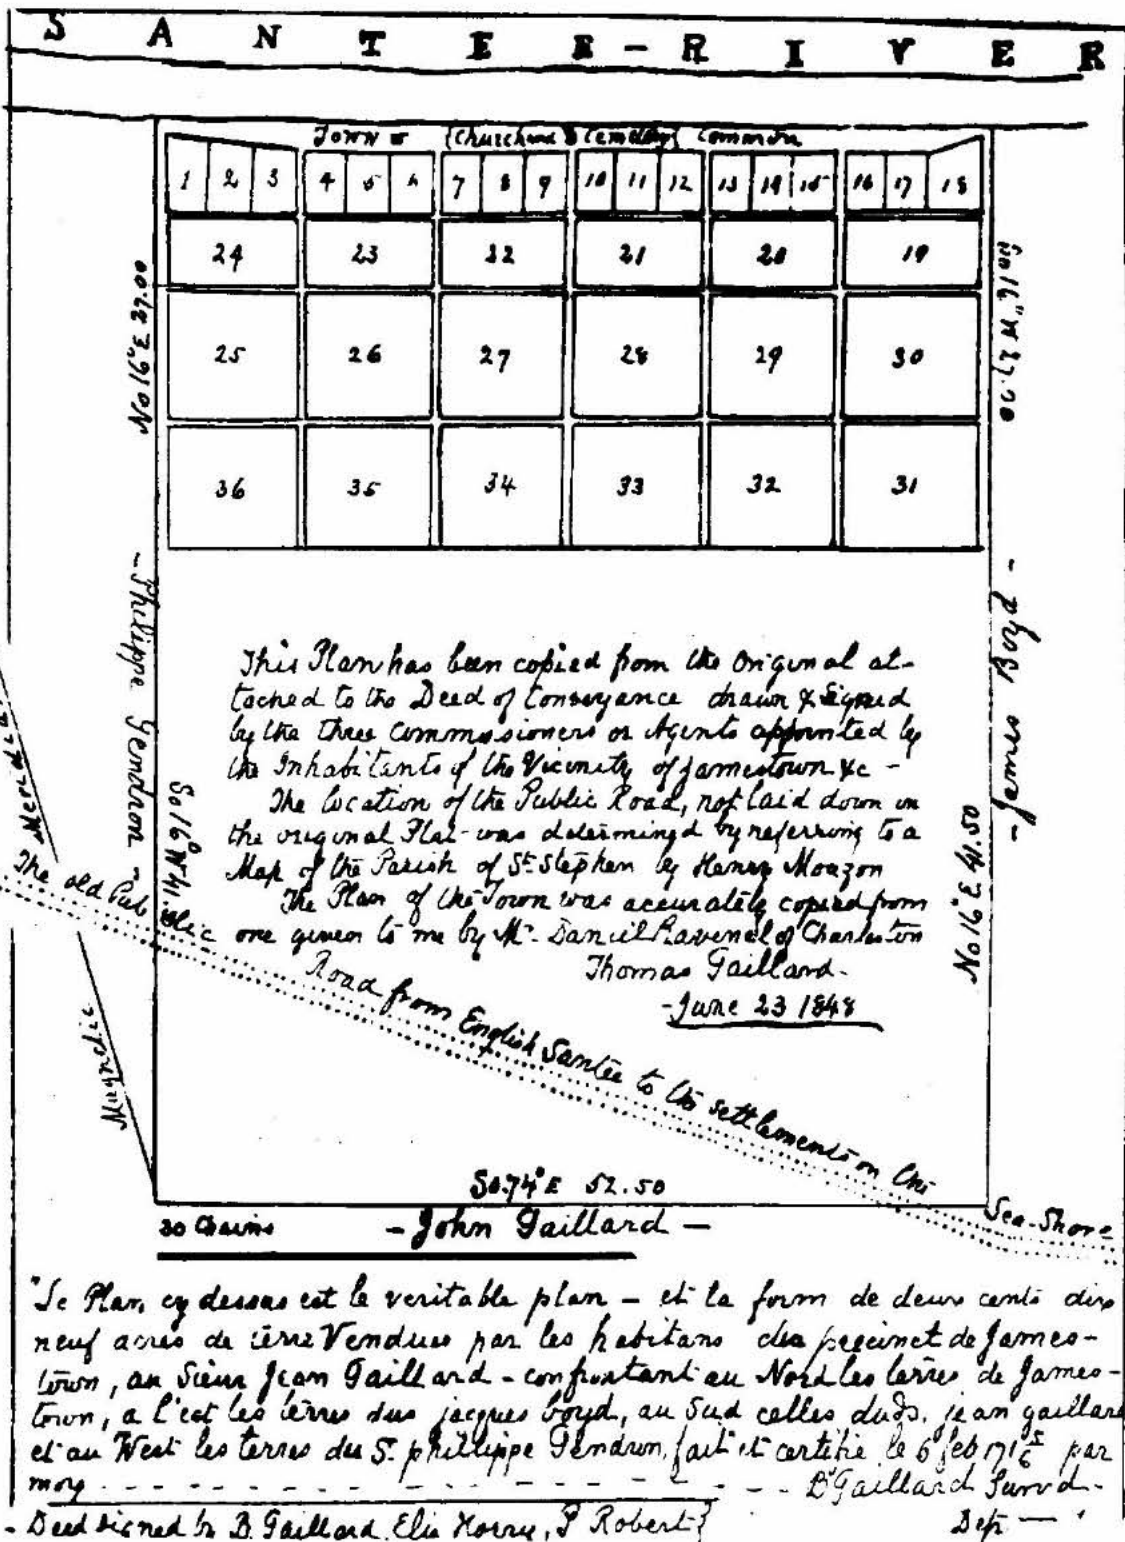 SANTEE-RIVER
Town & {Church and Cemetery} Common
1 2 3 4 5 6 7 8 9 10 11 12 13 14 15 16 17 18
24 23 22 21 20 19
25 26 27 28 29 30
36 35 34 33 32 31
No 16° E 27.00
No 16° W 27.00
- Philippe Gendron -
- James Boyd -
So 16° W 41.50
No 16° E 41.50
Magnetic Meridian
This Plan has been copied from the Original at-
tached to the Deed of Conveyance drawn & Signed
by the three Commissioners or Agents appointed by
the Inhabitants of the Vicinity of Jamestown &c -
The location of the Public Road, not laid down in
the original Plat - was determined by referring to a
Map of the Parish of St Stephen by Henry Mouzon
The Plan of the Town was accurately copied from
one given to me by Mr. Daniel Ravenel of Charleston
Thomas Gaillard.
- June 23 1848
The old Public Road from English Santee to the settlements on the Sea-Shore
So. 74° E 52.50
20 Chains
- John Gaillard -
"Le Plan cy dessus est le veritable plan - et la form de deux cents dix
neuf acres de terre Vendues par les habitans du precinct de James-
town, au Sieur Jean Gaillard - confrontant au Nord les terres de James-
town, a l'est les terres dus jacques boyd, au Sud celles duds. jean gaillard
et au West les terres du S. phillippe Gendron, fait et certifié le 6 feb 171 5/6 par
moy - - - B Gaillard Survd.
Dep -
- Deed signed by B. Gaillard, Elie Horry, P Robert}